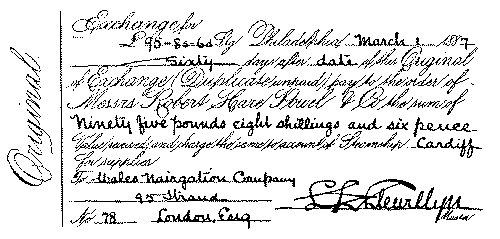 Original
Exchange for
£95-8s-6d Stg Philadelphia March 1 1887
Sixty days after date of this Original
of Exchange (Duplicate unpaid) pay to the order of
Messrs Robert Hare & Co the sum of
Ninety five pounds eight shillings and six pence
Value received and charge the same to account of Steamship Cardiff
for supplies
To Wales Navigation Company
95 Strand
No 78 London, Eng
Llewellyn